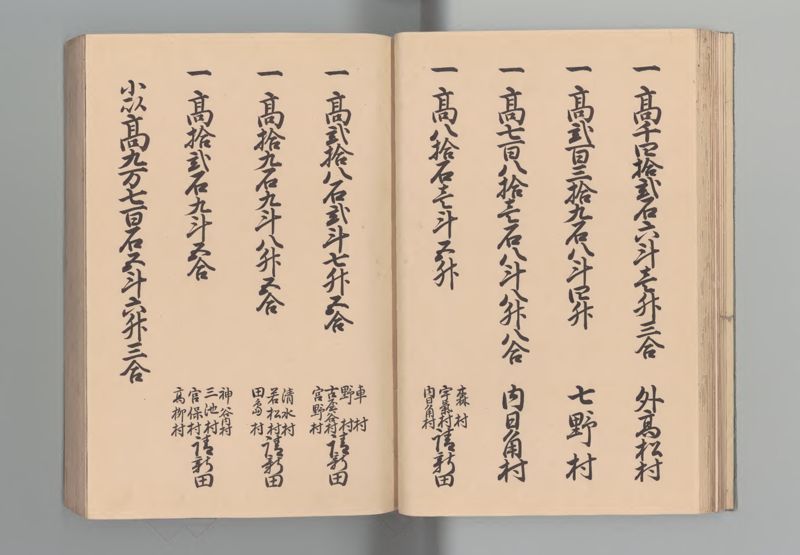 一高千四拾弐石六斗壱升三合 外高松村
一高弐百三拾九石八斗四升 七野村
一高七百八拾壱石八斗八升八合 内日角村
一高八拾石壱斗五升 森村
宇気村
内日角村 請新田
一高弐拾八石弐斗七升五合 車村
野村
吉倉谷村
宮野村 請新田
一高拾九石九斗八升五合 清水村
若松村
田島村 請新田
一高拾弐石九斗五合 神谷内村
三池村
宮保村
高柳村 請新田
小以高九万七百石五斗六升三合